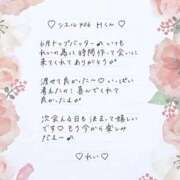 ♡ シエル 706 Mくん ♡
6月トップバッター♡いつも
れいの為に時間作って会いに
来てくれてありがとう✿
渡せて良かった〜♡いっぱい
考えたの！喜んでくれて
良かったよ
次会える日も決まって嬉しい
です♡もう今から楽しみ
だよ〜♪
♡れい♡